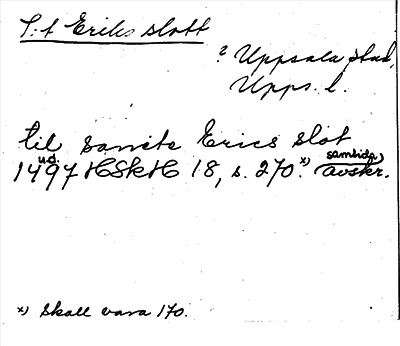 S:t Eriks slott
? Uppsala stad,
Upps. l.
til sancte Erics slot
1497 u.d. HSkH 18, s. 270. x) (samtida) avskr.
x) Skall vara 170.